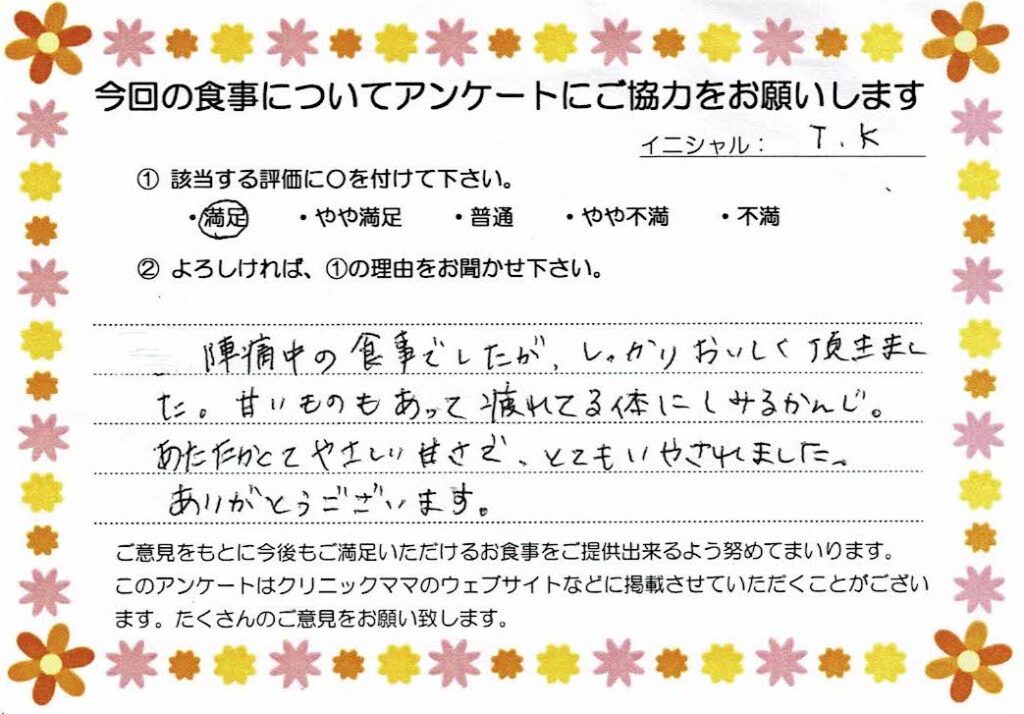 今回の食事についてアンケートにご協力をお願いします
イニシャル： T.K
① 該当する評価に〇を付けて下さい。
・満足 ・やや満足 ・普通 ・やや不満 ・不満
② よろしければ、①の理由をお聞かせ下さい。
陣痛中の食事でしたが、しっかりおいしく頂きまし
た。甘いものもあって疲れてる体にしみるかんじ。
あたたかくてやさしい甘さで、とてもいやされました。
ありがとうございます。
ご意見をもとに今後もご満足いただけるお食事をご提供出来るよう努めてまいります。
このアンケートはクリニックママのウェブサイトなどに掲載させていただくことがござい
ます。たくさんのご意見をお願い致します。